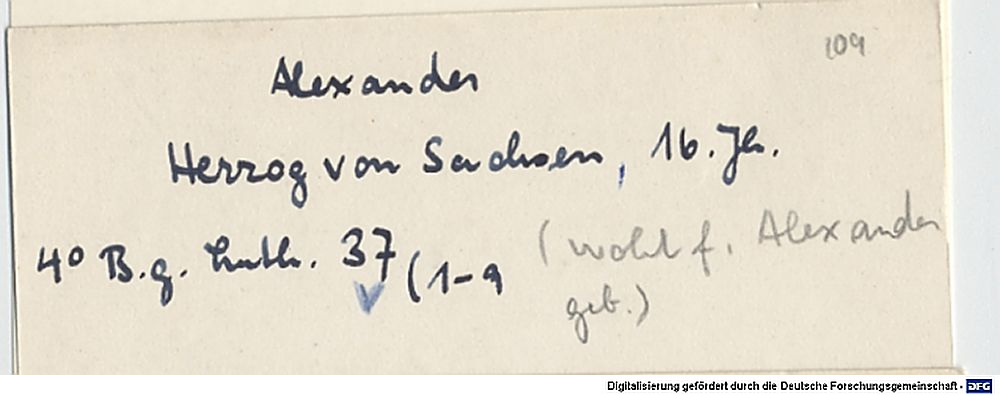 109
Alexander
Herzog von Sachsen, 16. Jh.
4° B. g. luth. 37 (1-9
(wohl f. Alexander
geb.)
Digitalisierung gefördert durch die Deutsche Forschungsgemeinschaft - DFG